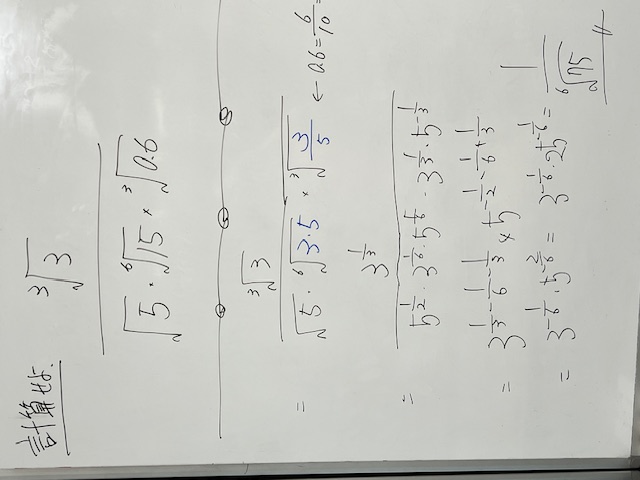 計算せよ.
∛3 / (√5 · ⁶√15 × ∛0.6)
= ∛3 / (√5 · ⁶√(3·5) × ∛(3/5)) ← 0.6 = 6/10 =
= 3^(1/3) / (5^(1/2) · 3^(1/6) · 5^(1/6) · 3^(1/3) · 5^(-1/3))
= 3^(1/3 - 1/6 - 1/3) × 5^(-1/2 - 1/6 + 1/3)
= 3^(-1/6) · 5^(-2/6) = 3^(-1/6) · 25^(-1/6) = 1/⁶√75 〃